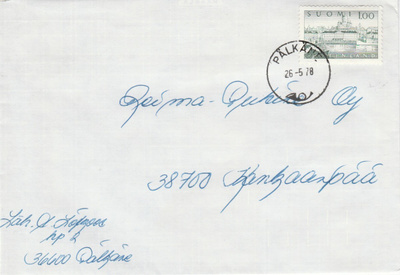 SUOMI 1,00
PÄLKÄNE
26-5.78
Reima-Pukine Oy
38700 Kankaanpää
kp 2
36600 Pälkäne